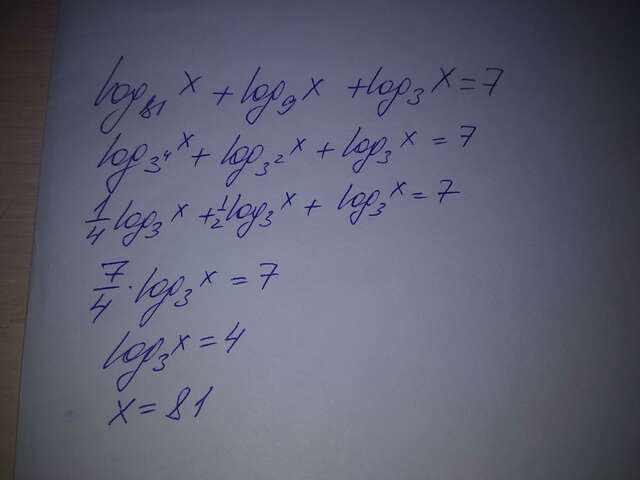 log₈₁ x + log₉ x + log₃ x = 7
log₃⁴ x + log₃² x + log₃ x = 7
1/4 log₃ x + 1/2 log₃ x + log₃ x = 7
7/4 · log₃ x = 7
log₃ x = 4
x = 81